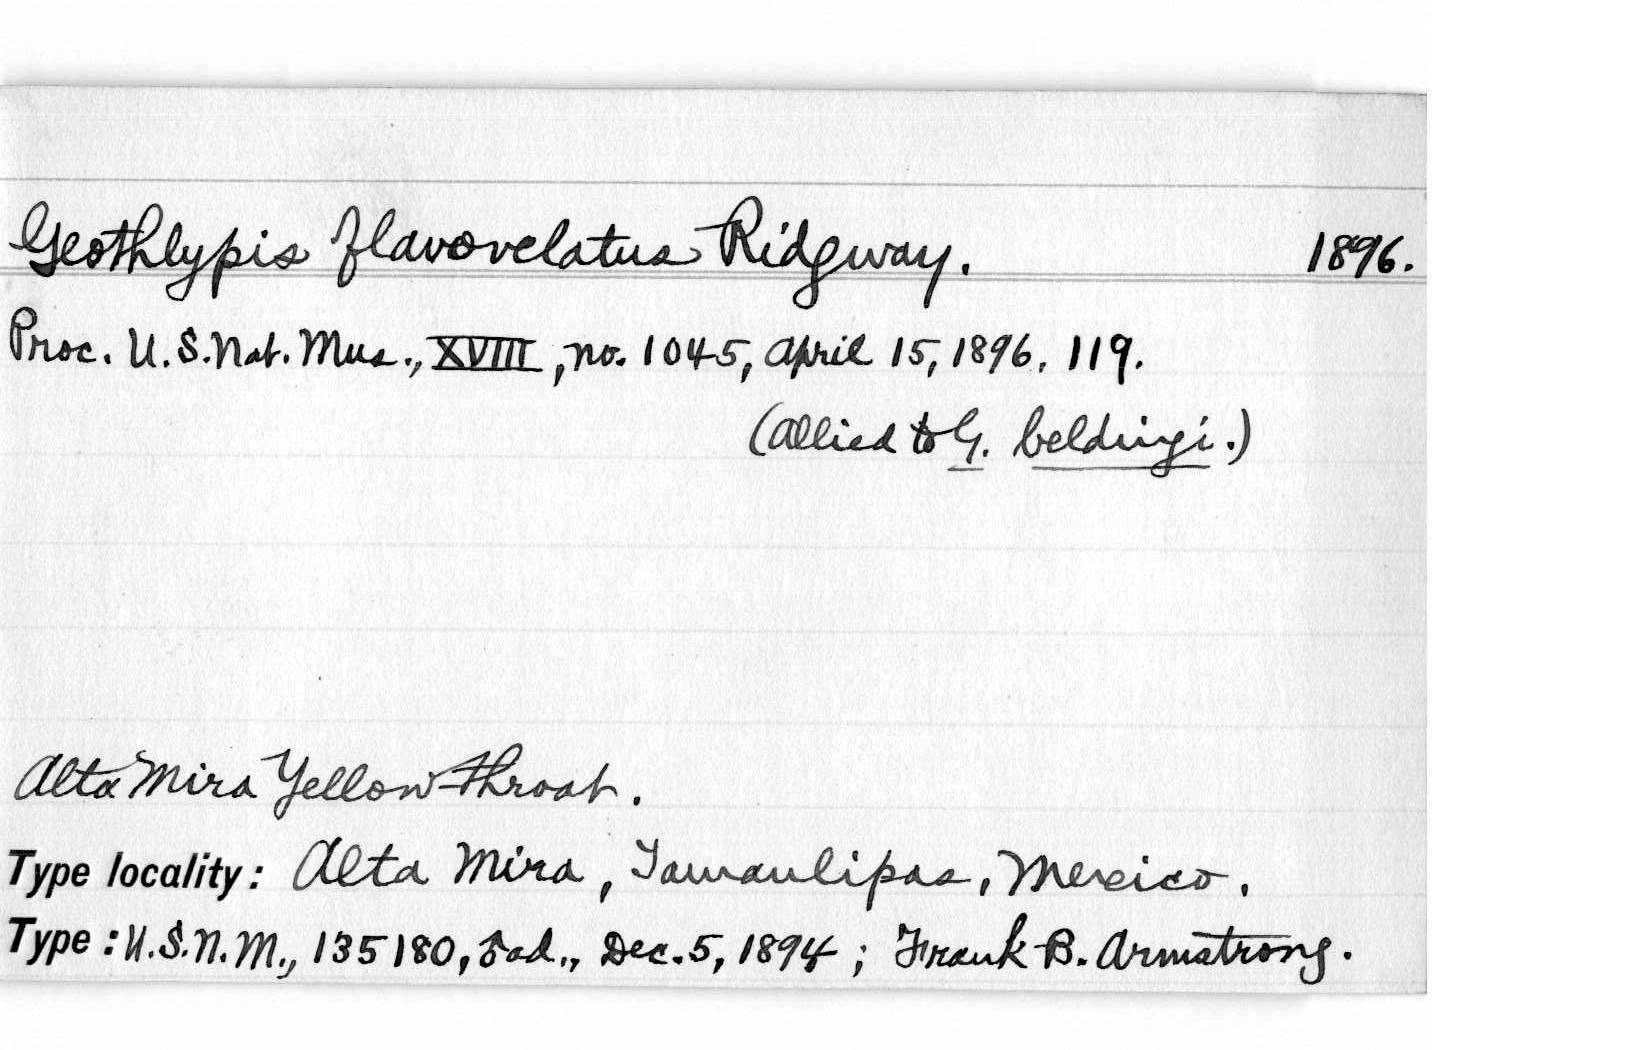 Geothlypis flavovelatus Ridgway. 1896.
Proc. U.S. Nat. Mus., XVIII, no. 1045, April 15, 1896, 119.
(Allied to G. beldingi.)
Alta Mira Yellow-throat.
Type locality: Alta Mira, Tamaulipas, Mexico.
Type: U.S.N.M., 135180, ♂ ad., Dec. 5, 1894; Frank B. Armstrong.